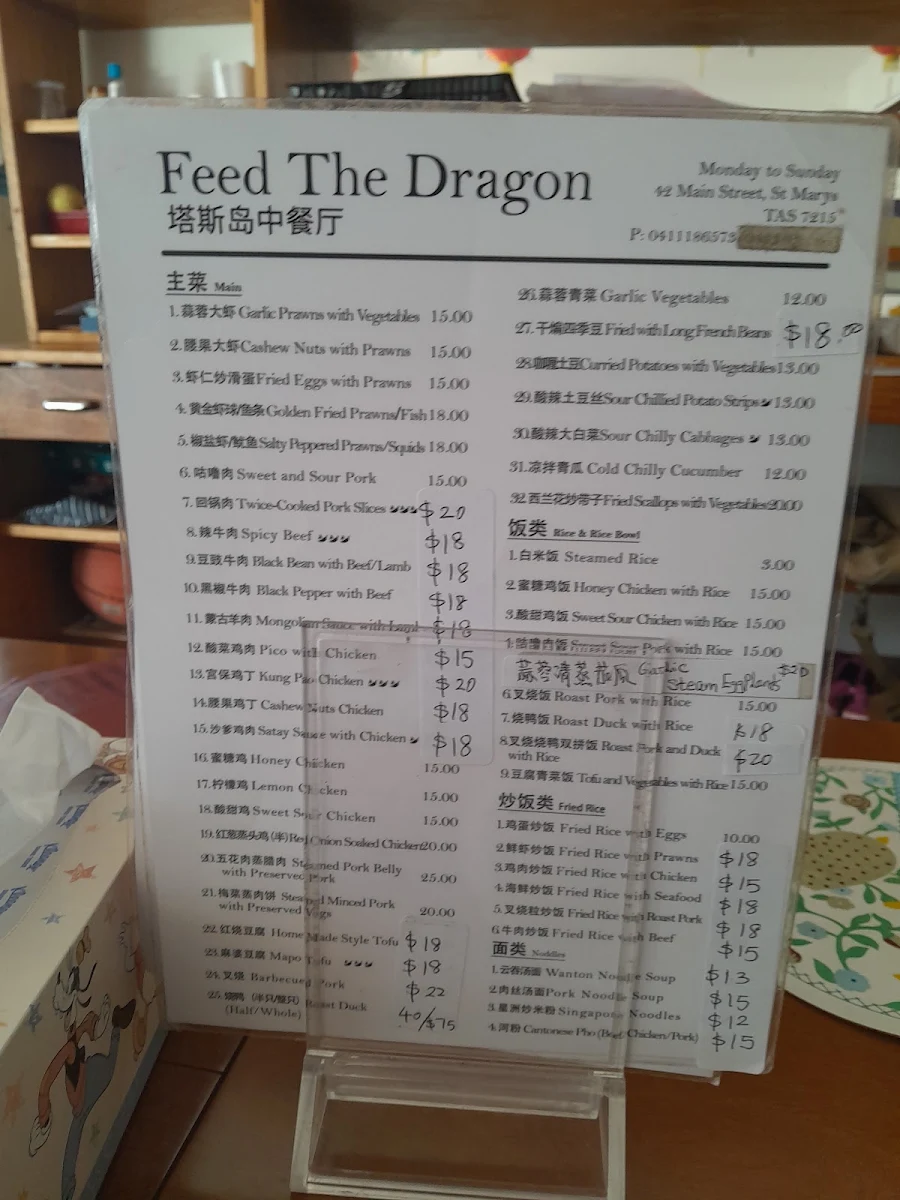 Feed The Dragon
塔斯岛中餐厅
Monday to Sunday
42 Main Street, St Marys
TAS 7215
P: 0411186573
主菜 Main
1.蒜蓉大虾 Garlic Prawns with Vegetables 15.00
2.腰果大虾Cashew Nuts with Prawns 15.00
3.虾仁炒滑蛋Fried Eggs with Prawns 15.00
4.黄金虾球/鱼条 Golden Fried Prawns/Fish 18.00
5.椒盐虾/鱿鱼 Salty Peppered Prawns/Squids 18.00
6.咕噜肉 Sweet and Sour Pork 15.00
7.回锅肉 Twice-Cooked Pork Slices $20
8.辣牛肉 Spicy Beef $18
9.豆豉牛肉 Black Bean with Beef/Lamb $18
10.黑椒牛肉 Black Pepper with Beef $18
11.蒙古羊肉 Mongolian Sauce with Lamb $18
12.酸菜鸡肉 Pico with Chicken $15
13.宫保鸡丁 Kung Pao Chicken $20
14.腰果鸡丁 Cashew Nuts Chicken $18
15.沙爹鸡肉 Satay Sauce with Chicken $18
16.蜜糖鸡 Honey Chicken 15.00
17.柠檬鸡 Lemon Chicken 15.00
18.酸甜鸡 Sweet Sour Chicken 15.00
19.红葱蒸头鸡 (半)Red Onion Soaked Chicken 20.00
20.五花肉蒸腊肉 Steamed Pork Belly
with Preserved Pork 25.00
21.梅菜蒸肉饼 Steamed Minced Pork
with Preserved Vegs 20.00
22.红烧豆腐 Home Made Style Tofu $18
23.麻婆豆腐 Mapo Tofu $18
24.叉烧 Barbecued Pork $22
25.烧鸭 (半只/整只) Roast Duck
(Half/Whole) 40/$75
26.蒜蓉青菜 Garlic Vegetables 12.00
27.干煸四季豆 Fried with Long French Beans $18.00
28.咖喱土豆Curried Potatoes with Vegetables 13.00
29.酸辣土豆丝Sour Chillied Potato Strips 13.00
30.酸辣大白菜Sour Chilly Cabbages 13.00
31.凉拌青瓜 Cold Chilly Cucumber 12.00
32.西兰花炒带子Fried Scallops with Vegetables 20.00
饭类 Rice & Rice Bowl
1.白米饭 Steamed Rice 3.00
2.蜜糖鸡饭 Honey Chicken with Rice 15.00
3.酸甜鸡饭 Sweet Sour Chicken with Rice 15.00
4.咕噜肉饭 Sweet Sour Pork with Rice 15.00
蒜蓉清蒸茄瓜 Garlic Steam Eggplant $20
6.叉烧饭 Roast Pork with Rice 15.00
7.烧鸭饭 Roast Duck with Rice $18
8.叉烧烧鸭双拼饭 Roast Pork and Duck
with Rice $20
9.豆腐青菜饭 Tofu and Vegetables with Rice 15.00
炒饭类 Fried Rice
1.鸡蛋炒饭 Fried Rice with Eggs 10.00
2.鲜虾炒饭 Fried Rice with Prawns $18
3.鸡肉炒饭 Fried Rice with Chicken $15
4.海鲜炒饭 Fried Rice with Seafood $18
5.叉烧粒炒饭 Fried Rice with Roast Pork $18
6.牛肉炒饭 Fried Rice with Beef $15
面类 Noddles
1.云吞汤面 Wanton Noodle Soup $13
2.肉丝汤面Pork Noodle Soup $15
3.星洲炒米粉 Singapore Noodles $12
4.河粉 Cantonese Pho (Beef/Chicken/Pork) $15